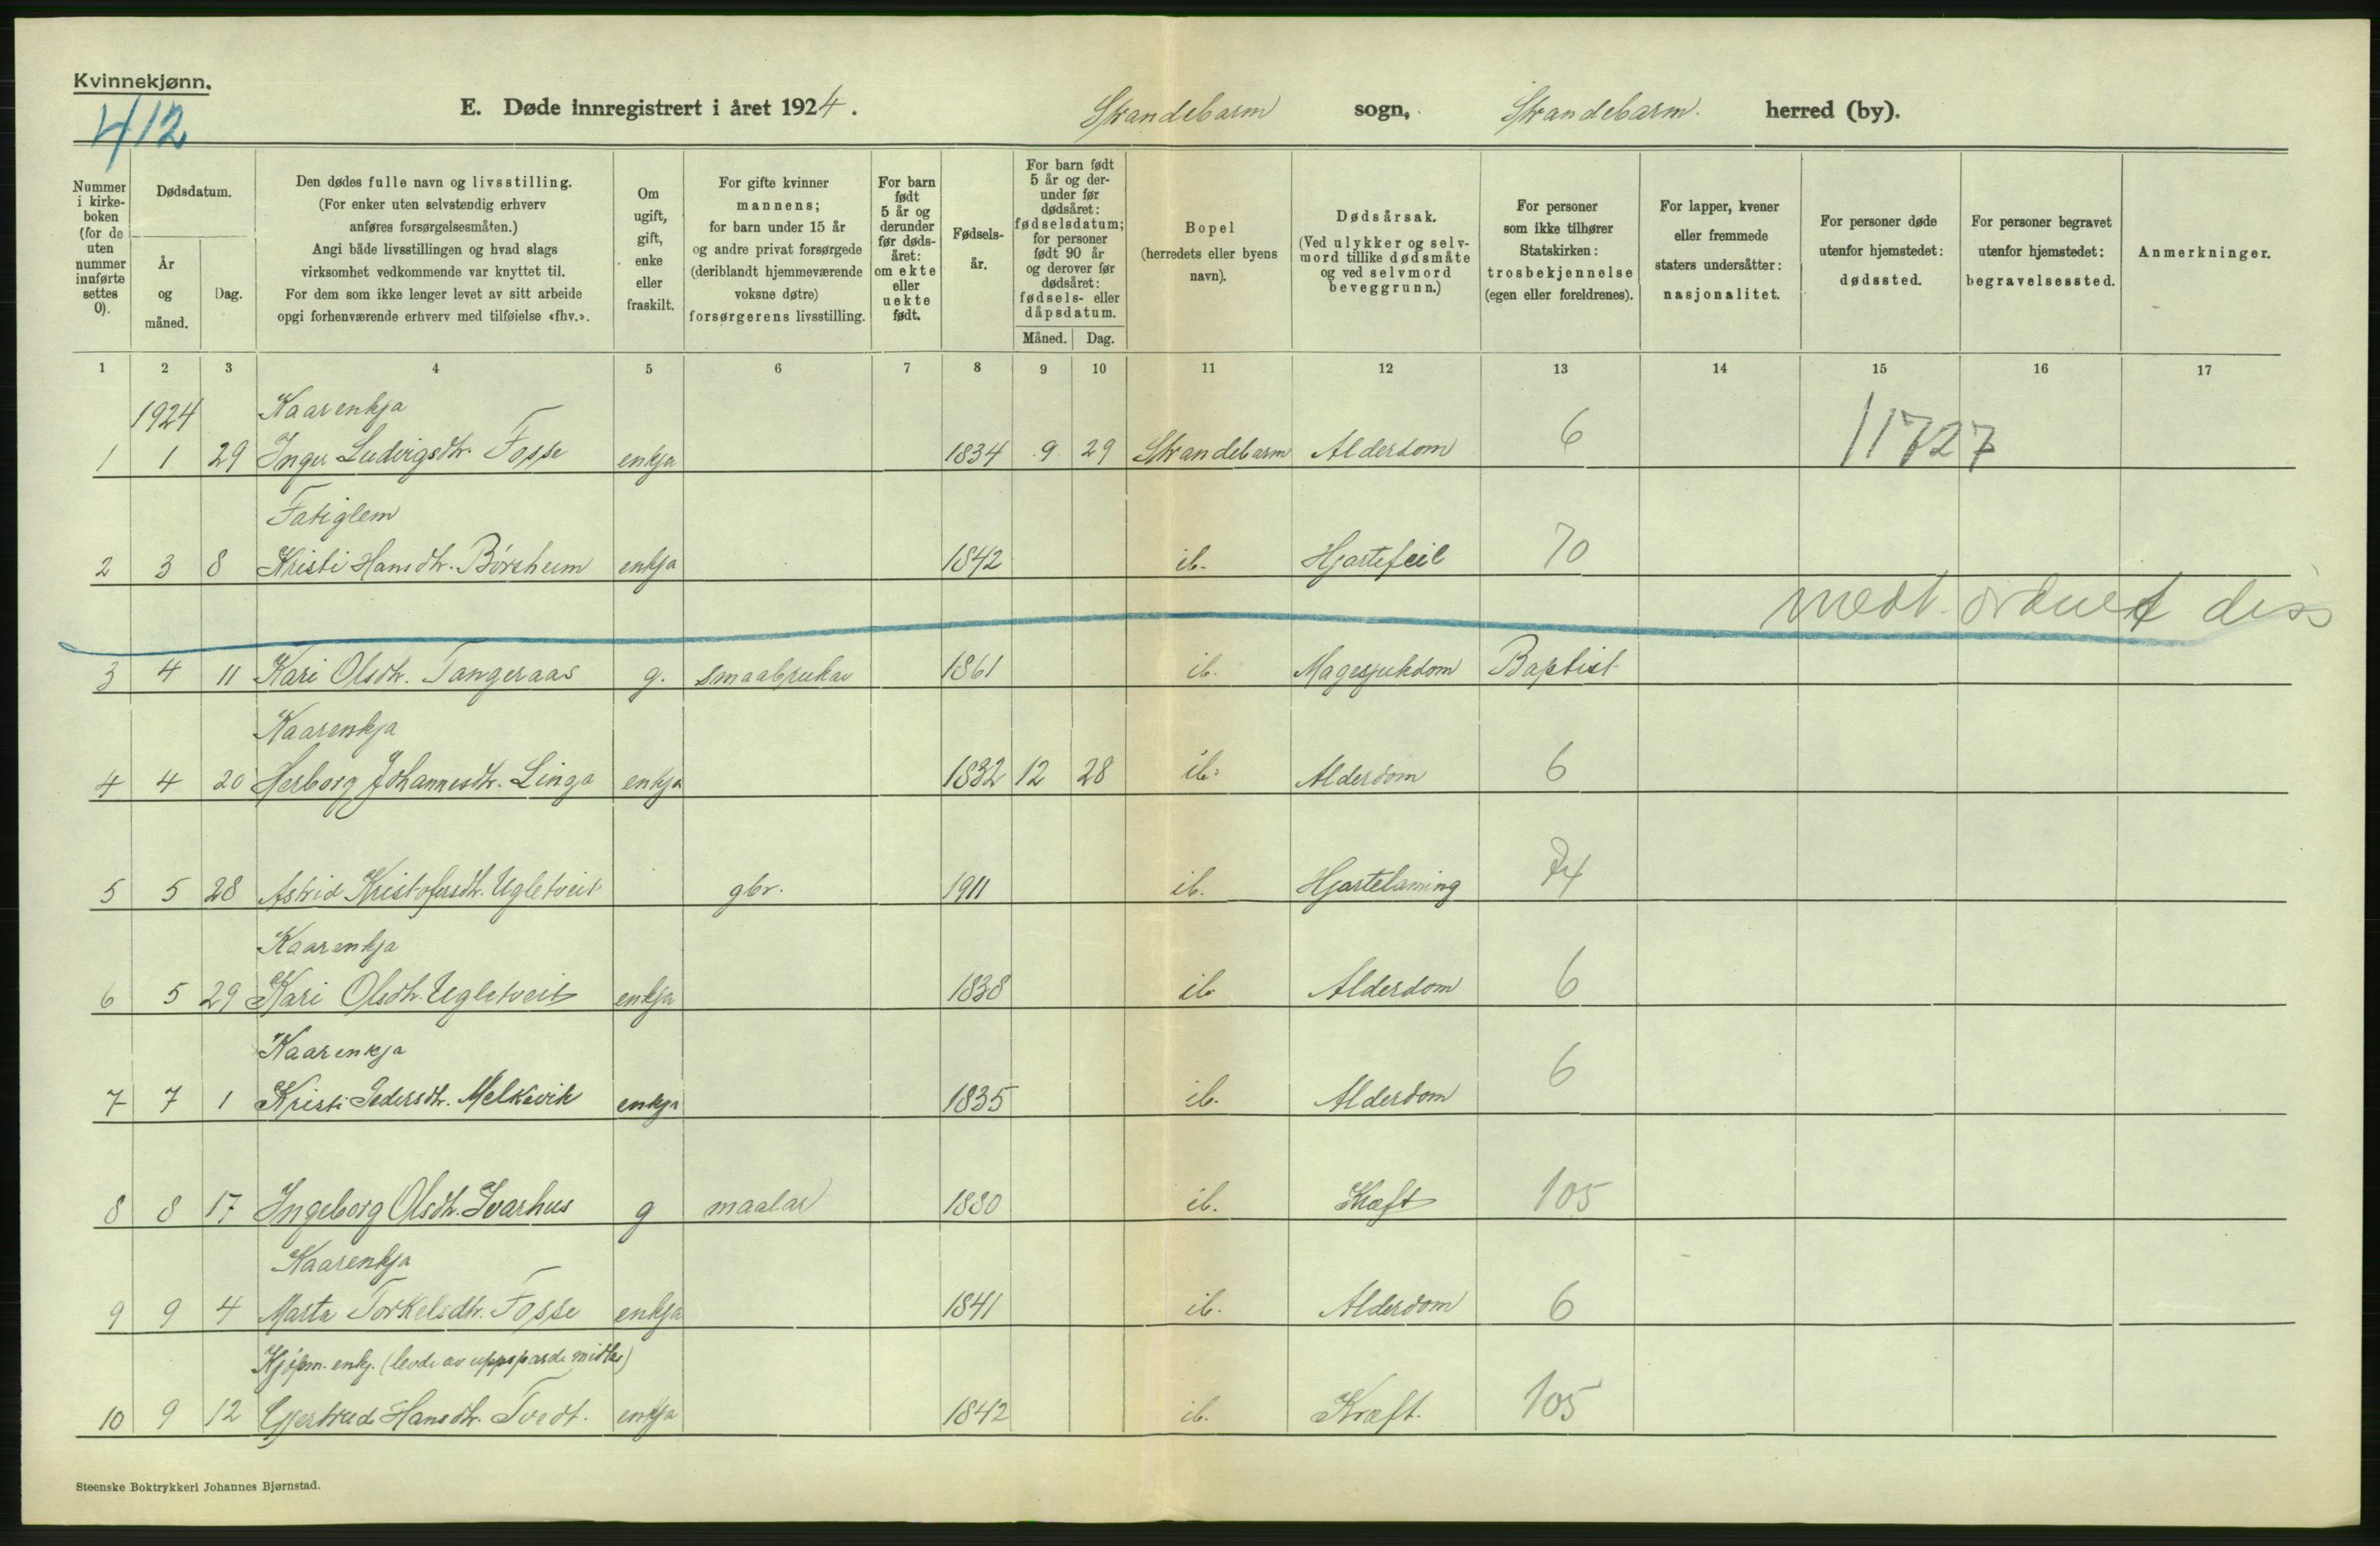 Kvinnekjønn.
412
E. Døde innregistrert i året 1924. Strandebarm sogn, Strandebarm. herred (by).
Nummer i kirke-boken (for de uten nummer innførte settes 0).
Dødsdatum.
År og måned.
Dag.
Den dødes fulle navn og livsstilling.
(For enker uten selvstendig erhverv
anføres forsørgelsesmåten.)
Angi både livsstillingen og hvad slags
virksomhet vedkommende var knyttet til.
For dem som ikke lenger levet av sitt arbeide
opgi forhenværende erhverv med tilføielse «fhv.».
Om ugift, gift, enke eller fraskilt.
For gifte kvinner
mannens;
for barn under 15 år
og andre privat forsørgede
(deriblandt hjemmeværende
voksne døtre)
forsørgerens livsstilling.
For barn født 5 år og derunder før døds-året: om ekte eller uekte født.
Fødsels-år.
For barn født
5 år og der-
under før
dødsåret:
fødselsdatum;
for personer
født 90 år
og derover før
dødsåret:
fødsels- eller
dåpsdatum.
Måned. Dag.
Bopel
(herredets eller byens
navn).
Dødsårsak.
(Ved ulykker og selv-
mord tillike dødsmåte
og ved selvmord
beveggrunn.)
For personer
som ikke tilhører
Statskirken:
trosbekjennelse
(egen eller foreldrenes).
For lapper, kvener
eller fremmede
staters undersåtter:
nasjonalitet.
For personer døde
utenfor hjemstedet:
dødssted.
For personer begravet
utenfor hjemstedet:
begravelsessted.
Anmerkninger.
1 2 3 4 5 6 7 8 9 10 11 12 13 14 15 16 17
1924 Kaarenkja
1 1 29 Inger Ludvigsdtr. Fosse enkja 1834 9 29 Strandebarm Alderdom 6 11727
Fatiglem
2 3 8 Kristi Hansdtr. Børsheim enkja 1842 ib. Hjartefeil 70
medt. ordnet diss
3 4 11 Kari Olsdtr. Tangeraas g. smaabrukar 1861 ib. Magesjukdom Baptist
Kaarenkja
4 4 20 Herborg Johannesdtr. Linga enkja 1832 12 28 ib. Alderdom 6
5 5 28 Astrid Kristofersdtr. Ugletveit gbr. 1911 ib. Hjartelaming 74
Kaarenkja
6 5 29 Kari Olsdtr. Ugletveit enkja 1838 ib Alderdom 6
Kaarenkja
7 7 1 Kristi Pedersdtr. Melkevik enkja 1835 ib. Alderdom 6
8 8 17 Ingeborg Olsdtr. Ivarhus g maalar 1880 ib. Kræft 105
Kaarenkja
9 9 4 Marta Torkelsdtr. Fosse enkja 1841 ib. Alderdom 6
Kjøpm. enkj. (levde av uppsparde midlar)
10 9 12 Gjertrud Hansdtr. Tvedt. enkja 1842 ib. Kræft. 105
Steenske Boktrykkeri Johannes Bjørnstad.